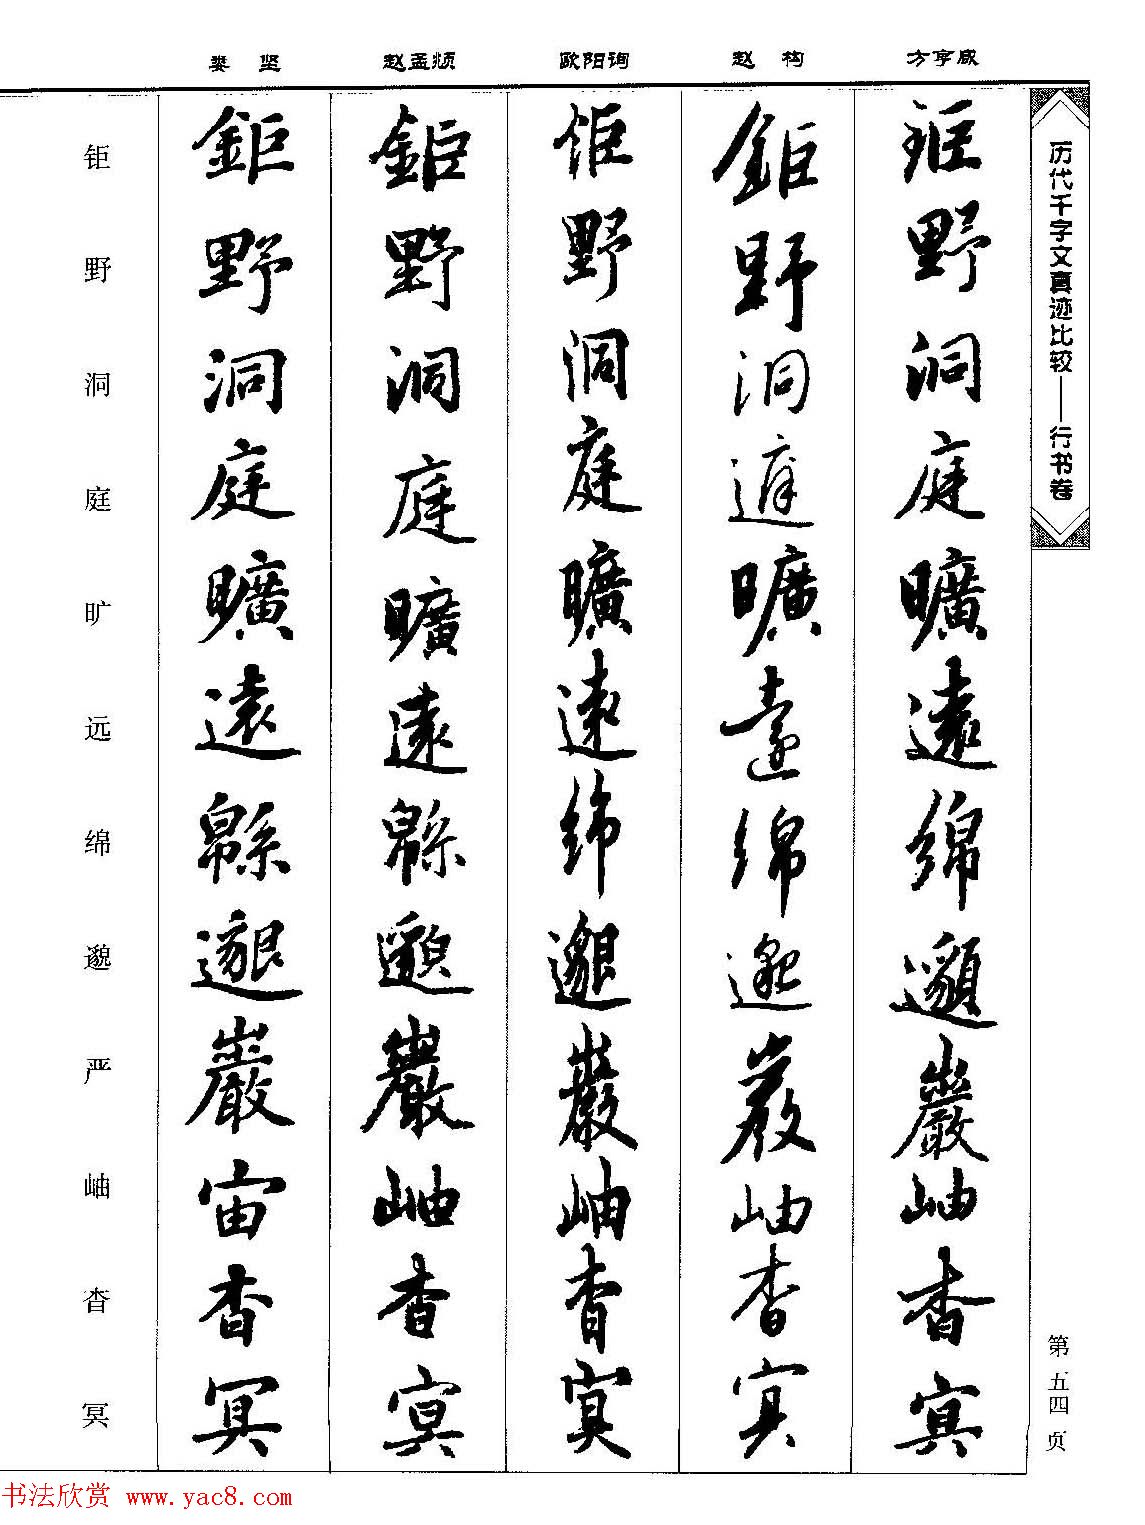 历代千字文真迹比较——行书卷
第五四页
方亨咸
鉅野洞庭曠遠綿邈巖岫杳冥
赵构
鉅野洞庭曠遠綿邈巖岫杳冥
欧阳询
鉅野洞庭曠遠綿邈巖岫杳冥
赵孟頫
鉅野洞庭曠遠緜邈巖岫杳冥
娄坚
鉅野洞庭曠遠緜邈巖宙杳冥
钜野洞庭旷远绵邈严岫杳冥
书法欣赏 www.yac8.com